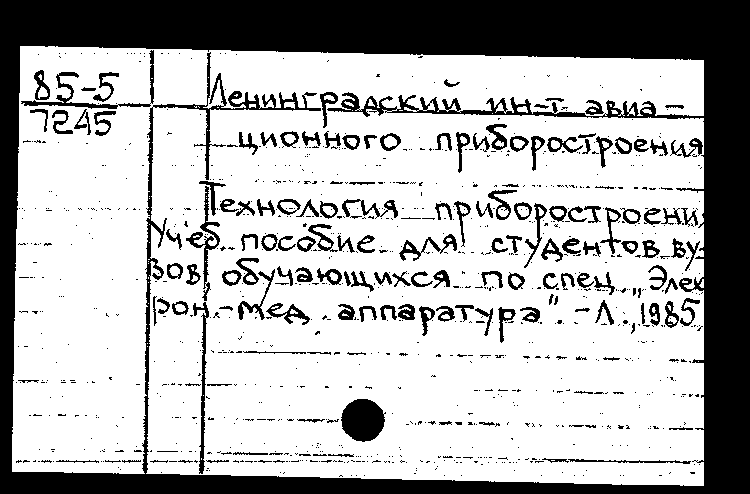 85-5
7245
Ленинградский ин-т авиа-
ционного приборостроения
Технология приборостроени
Учеб. пособие для студентов ву-
зов, обучающихся по спец. „Элек
рон.-мед. аппаратура". - Л., 1985